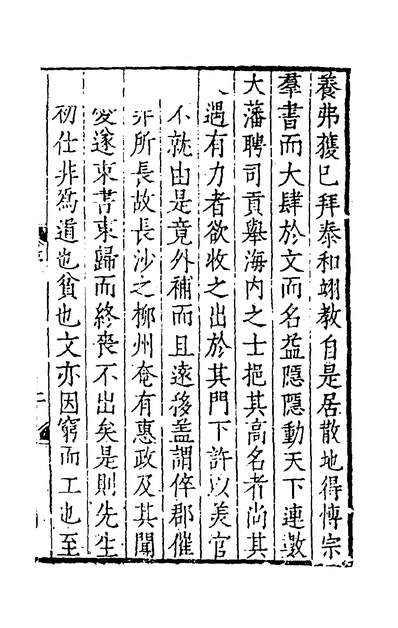 養弗獲已拜泰和翊教自是居散地得博宗
羣書而大肆於文而名益隱隱動天下連數
大藩聘司貢舉海内之士挹其高名者尚其
遇有力者欲收之出於其門下許以美官
不就由是竟外補而且遠移盖謂倅郡催
非所長故長沙之柳州奄有惠政及其聞
憂遂束書東歸而終喪不出矣是則先生
初仕非爲道也貧也文亦因窮而工也至